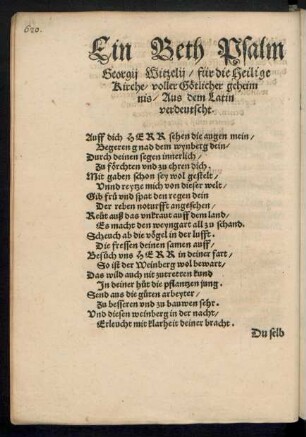 620.
Ein Beth Psalm
Georgij Witzelij / für die Heilige
Kirche / voller Götlicher geheim
nis / Aus dem Latin
verdeutscht.
Auff dich HERR sehen die augen mein /
Begeren gnad dem wynberg dein /
Durch deinen segen innerlich /
Zu förchten vnd zu ehren dich.
Mit gaben schon sey wol gestelt /
Vnnd reytze mich von dieser welt /
Gib frü vnd spat den regen dein
Der reben notturfft angesehen /
Reüt auß das vnkraut auff dem land /
Es macht den weyngart all zu schand.
Scheuch ab die vögel in der lufft.
Die fressen deinen samen auff /
Besüch vns HERR in deiner fart /
So ist der Weinberg wol bewart /
Das wild auch nit zutretten kund
In deiner hüt die pflantzen jung.
Send aus die güten arbeyter /
Zu besseren vnd zu bauwen sehr.
Vnd diesen weinberg in der nacht /
Erleucht mit klarheit deiner bracht.
Du selb